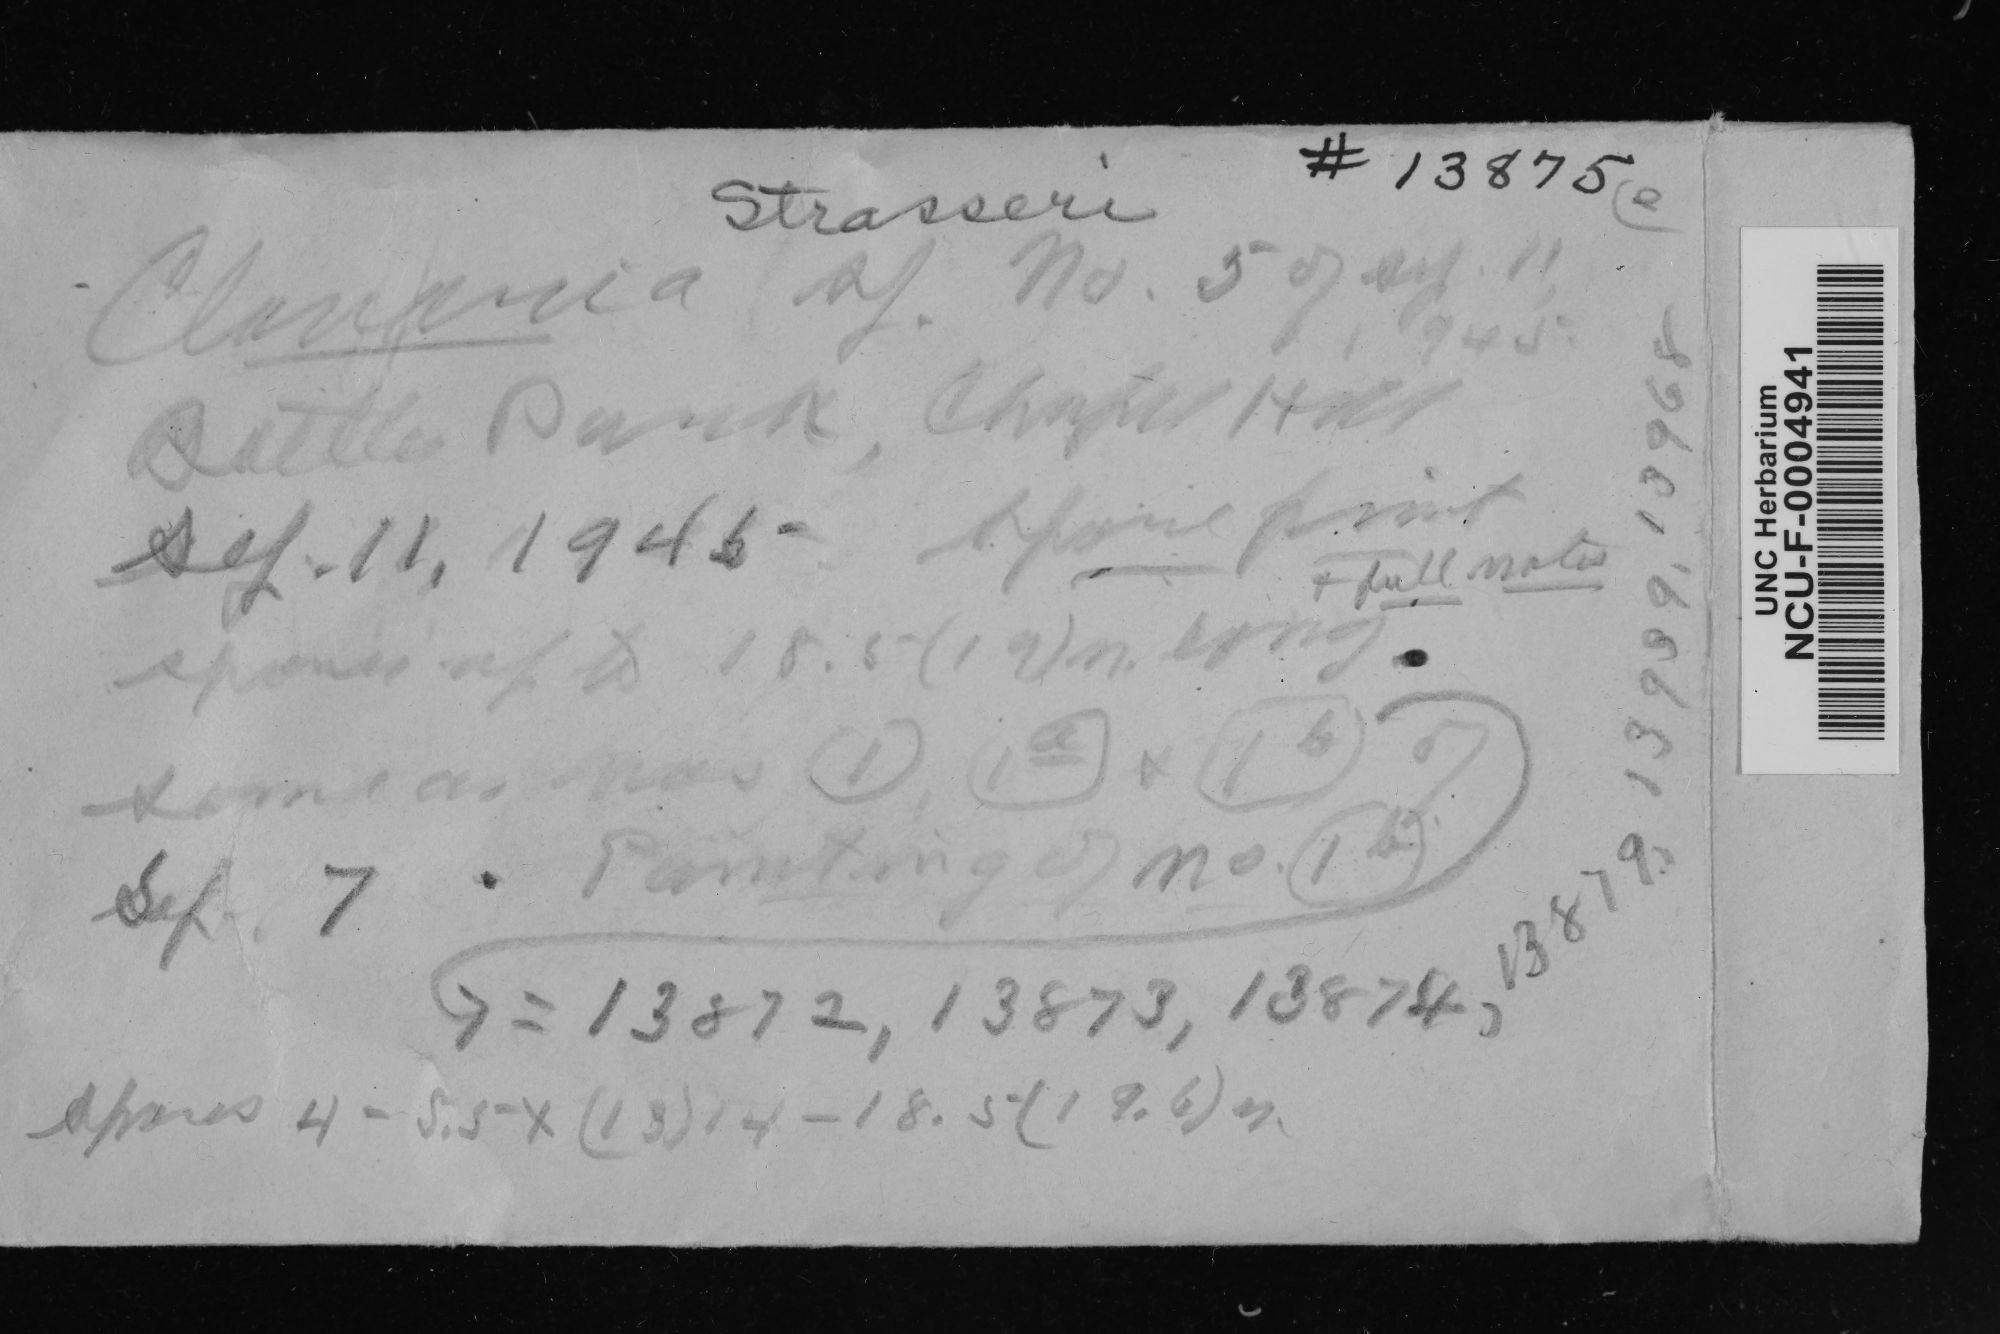 # 13875 (a
Strasseri
Clavaria sp. No. 5 of Sep. 11,
1945.
Battle Park, Chapel Hill
Sep. 11, 1945 spore print
+ full notes
spores up to 18.5 (19) µ. long.
same as nos 1, 1a & 1b of
Sep. 7. Painting of No. 1b.
7 = 13872, 13873, 13874, 13879, 13939, 13968
spores 4-5.5 x (13) 14-18.5 (19.6) µ.
UNC Herbarium
NCU-F-0004941